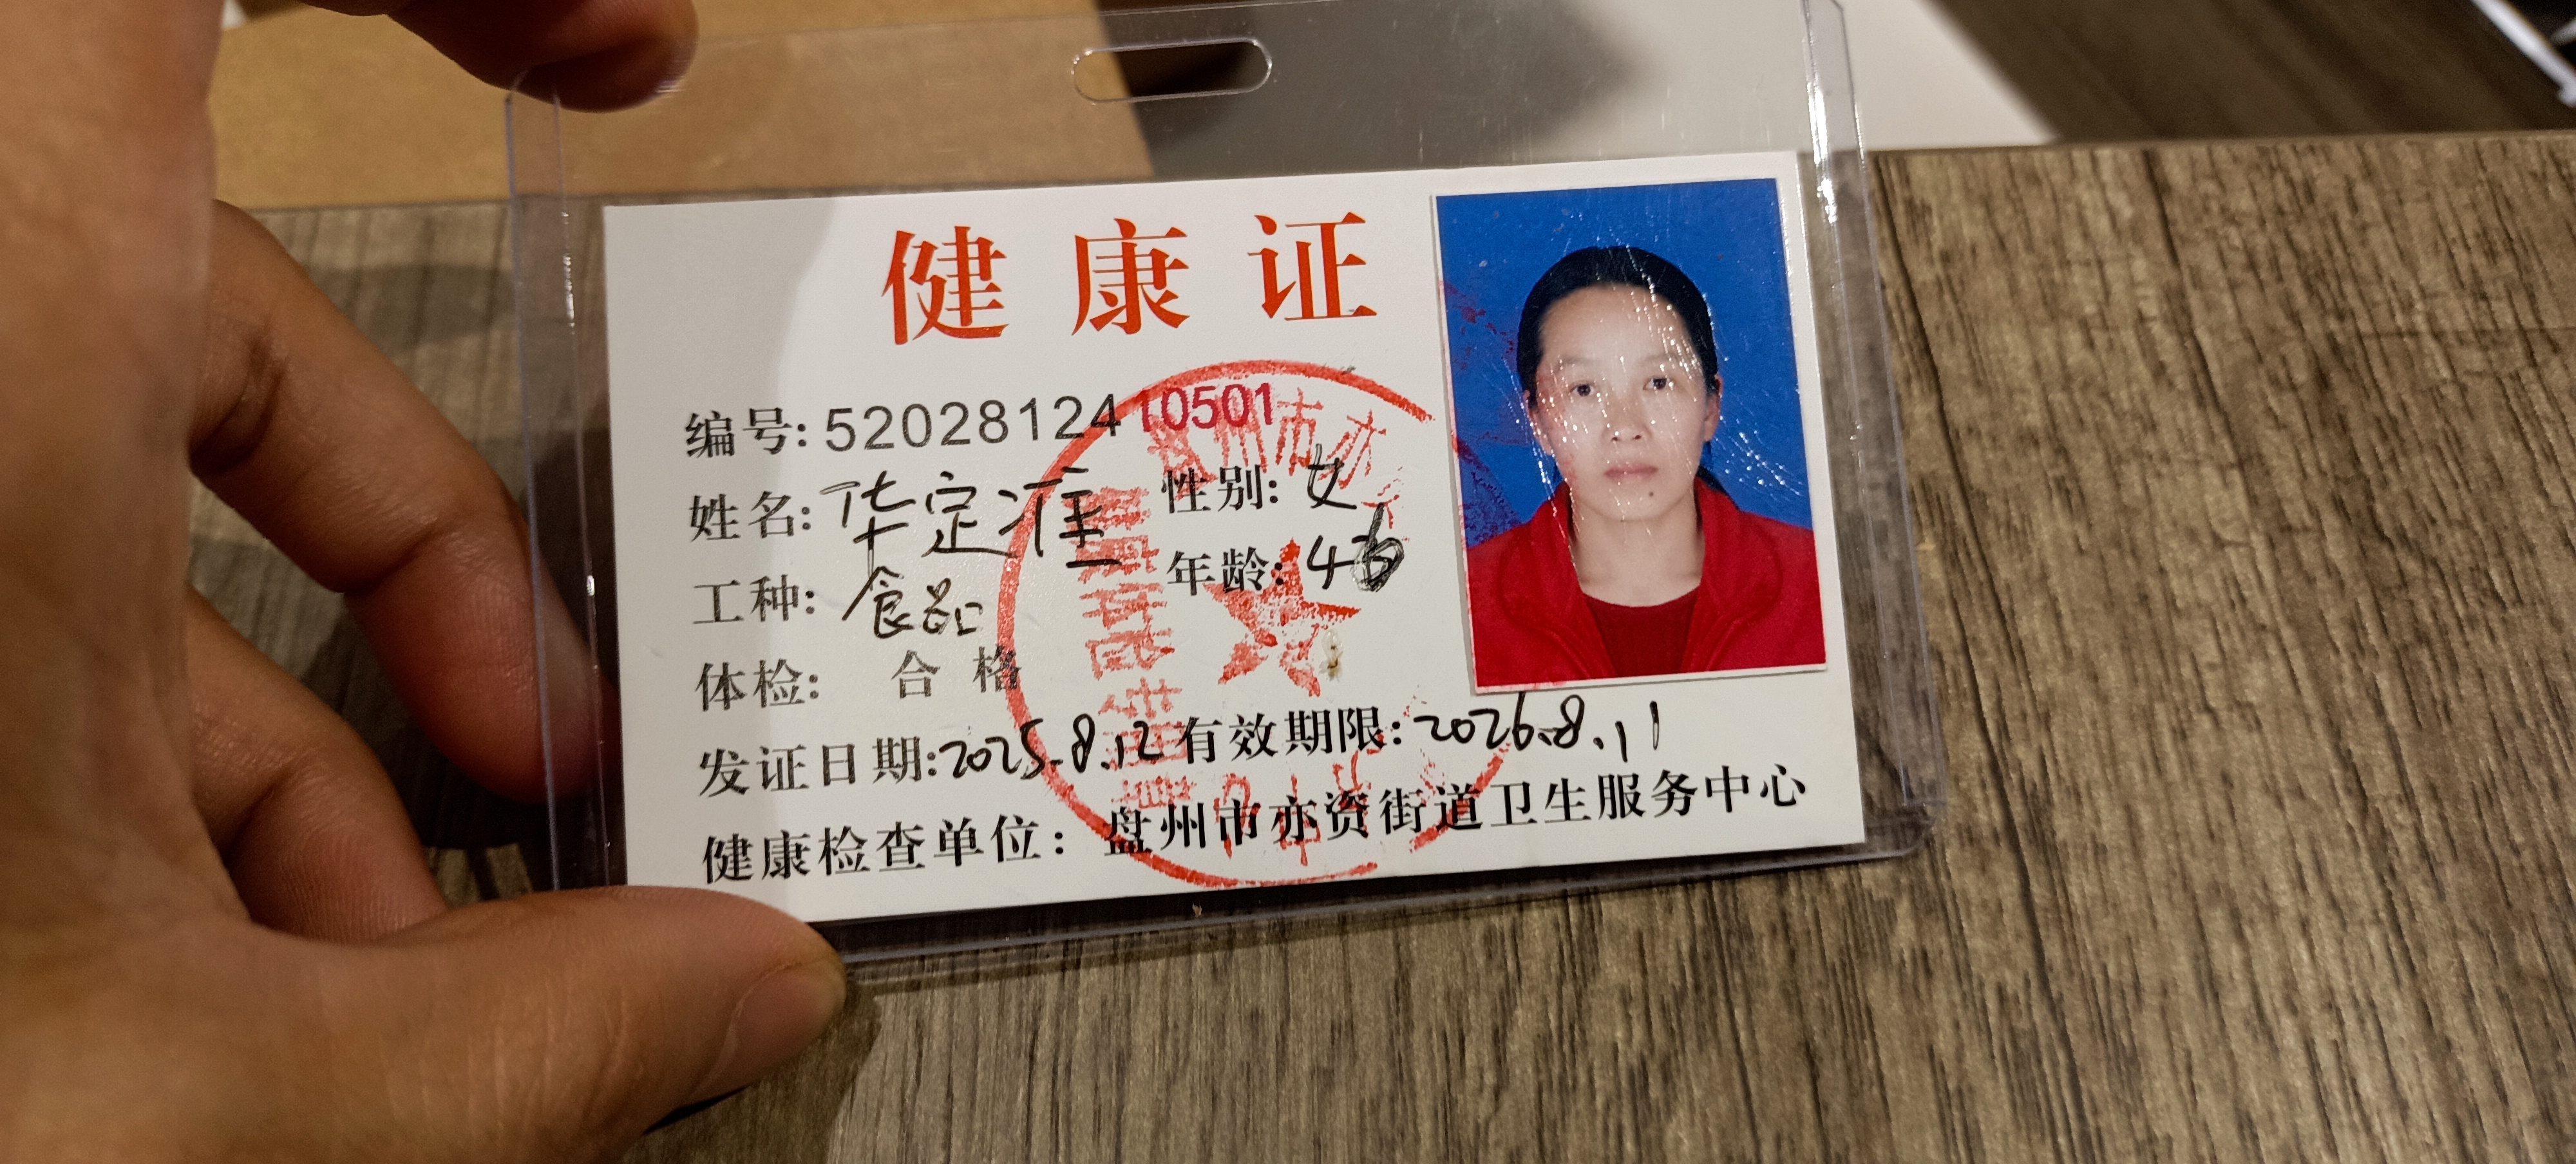 健康证
编号: 5202812410501
姓名: 华定准 性别: 女
工种: 食品 年龄: 46
体检: 合格
发证日期: 2025.8.12 有效期限: 2026.8.11
健康检查单位: 盘州市亦资街道卫生服务中心